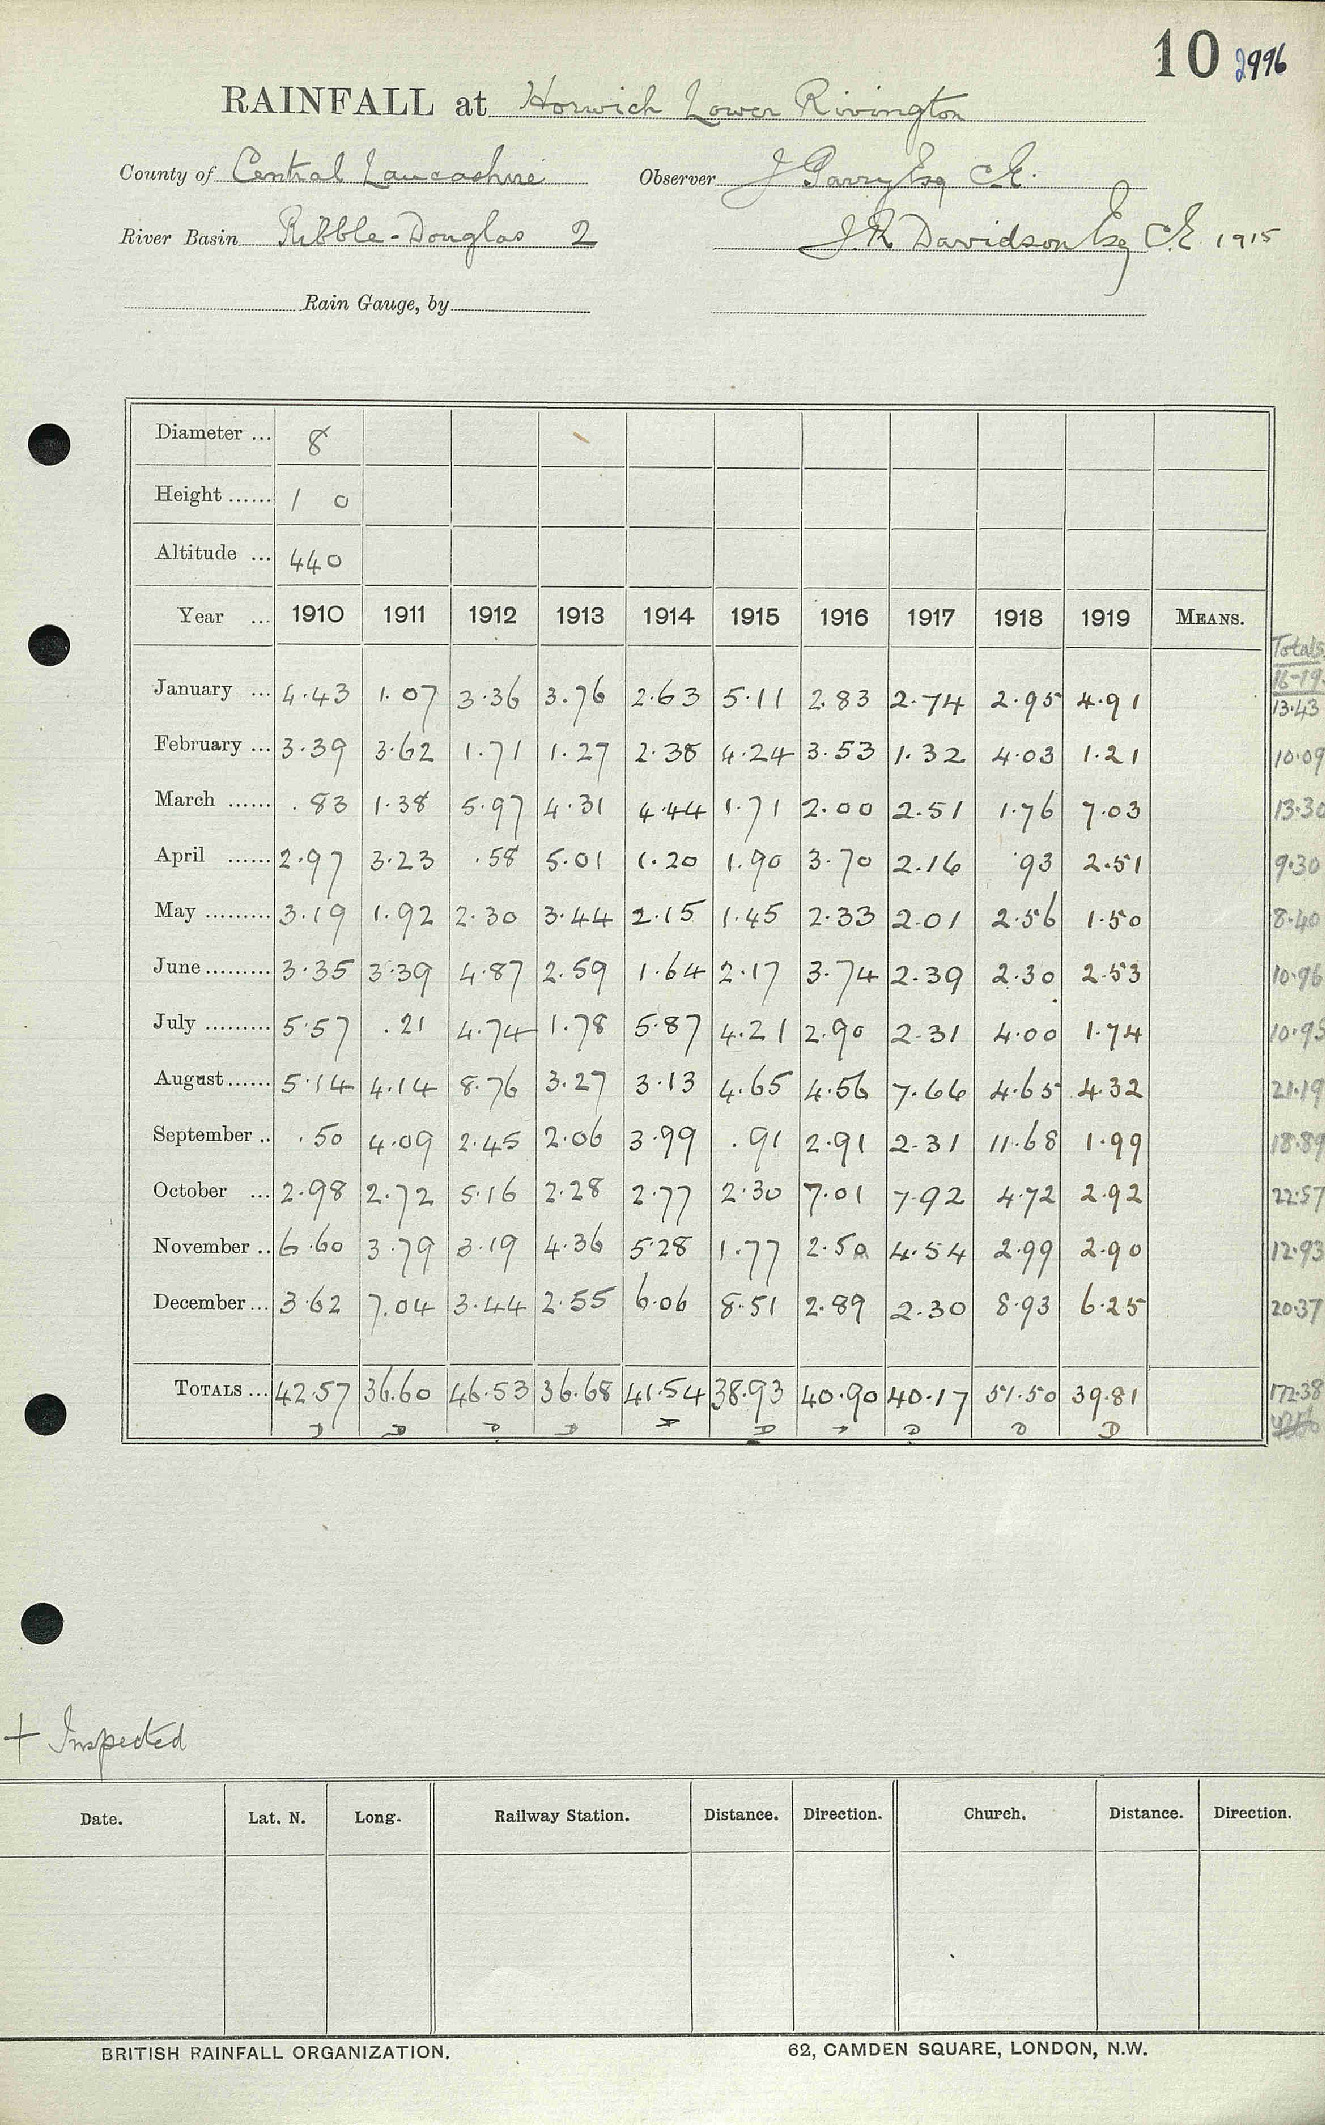 10 2996
RAINFALL at Horwich Lower Rivington
County of Central Lancashire Observer J Parry Esq C.E.
River Basin Ribble-Douglas 2 J.R Davidson Esq C.E 1915
Rain Gauge, by
Diameter ... 8
Height ...... 1 0
Altitude ... 440
Year ... 1910 1911 1912 1913 1914 1915 1916 1917 1918 1919 MEANS.
Totals
16-19
January ... 4.43 1.07 3.36 3.76 2.63 5.11 2.83 2.74 2.95 4.91 13.43
February ... 3.39 3.62 1.71 1.27 2.38 4.24 3.53 1.32 4.03 1.21 10.09
March ...... .83 1.38 5.97 4.31 4.44 1.71 2.00 2.51 1.76 7.03 13.30
April ...... 2.97 3.23 .58 5.01 1.20 1.90 3.70 2.16 .93 2.51 9.30
May ......... 3.19 1.92 2.30 3.44 2.15 1.45 2.33 2.01 2.56 1.50 8.40
June ......... 3.35 3.39 4.87 2.59 1.64 2.17 3.74 2.39 2.30 2.53 10.96
July ......... 5.57 .21 4.74 1.78 5.87 4.21 2.90 2.31 4.00 1.74 10.95
August ...... 5.14 4.14 8.76 3.27 3.13 4.65 4.56 7.66 4.65 4.32 21.19
September .. .50 4.09 2.45 2.06 3.99 .91 2.91 2.31 11.68 1.99 18.89
October ... 2.98 2.72 5.16 2.28 2.77 2.30 7.01 7.92 4.72 2.92 22.57
November .. 6.60 3.79 3.19 4.36 5.28 1.77 2.50 4.54 2.99 2.90 12.93
December ... 3.62 7.04 3.44 2.55 6.06 8.51 2.89 2.30 8.93 6.25 20.37
TOTALS ... 42.57 36.60 46.53 36.68 41.54 38.93 40.90 40.17 51.50 39.81 172.38
D D D D D D D D D D
+ Inspected
Date. Lat. N. Long. Railway Station. Distance. Direction. Church. Distance. Direction.
BRITISH RAINFALL ORGANIZATION. 62, CAMDEN SQUARE, LONDON, N.W.